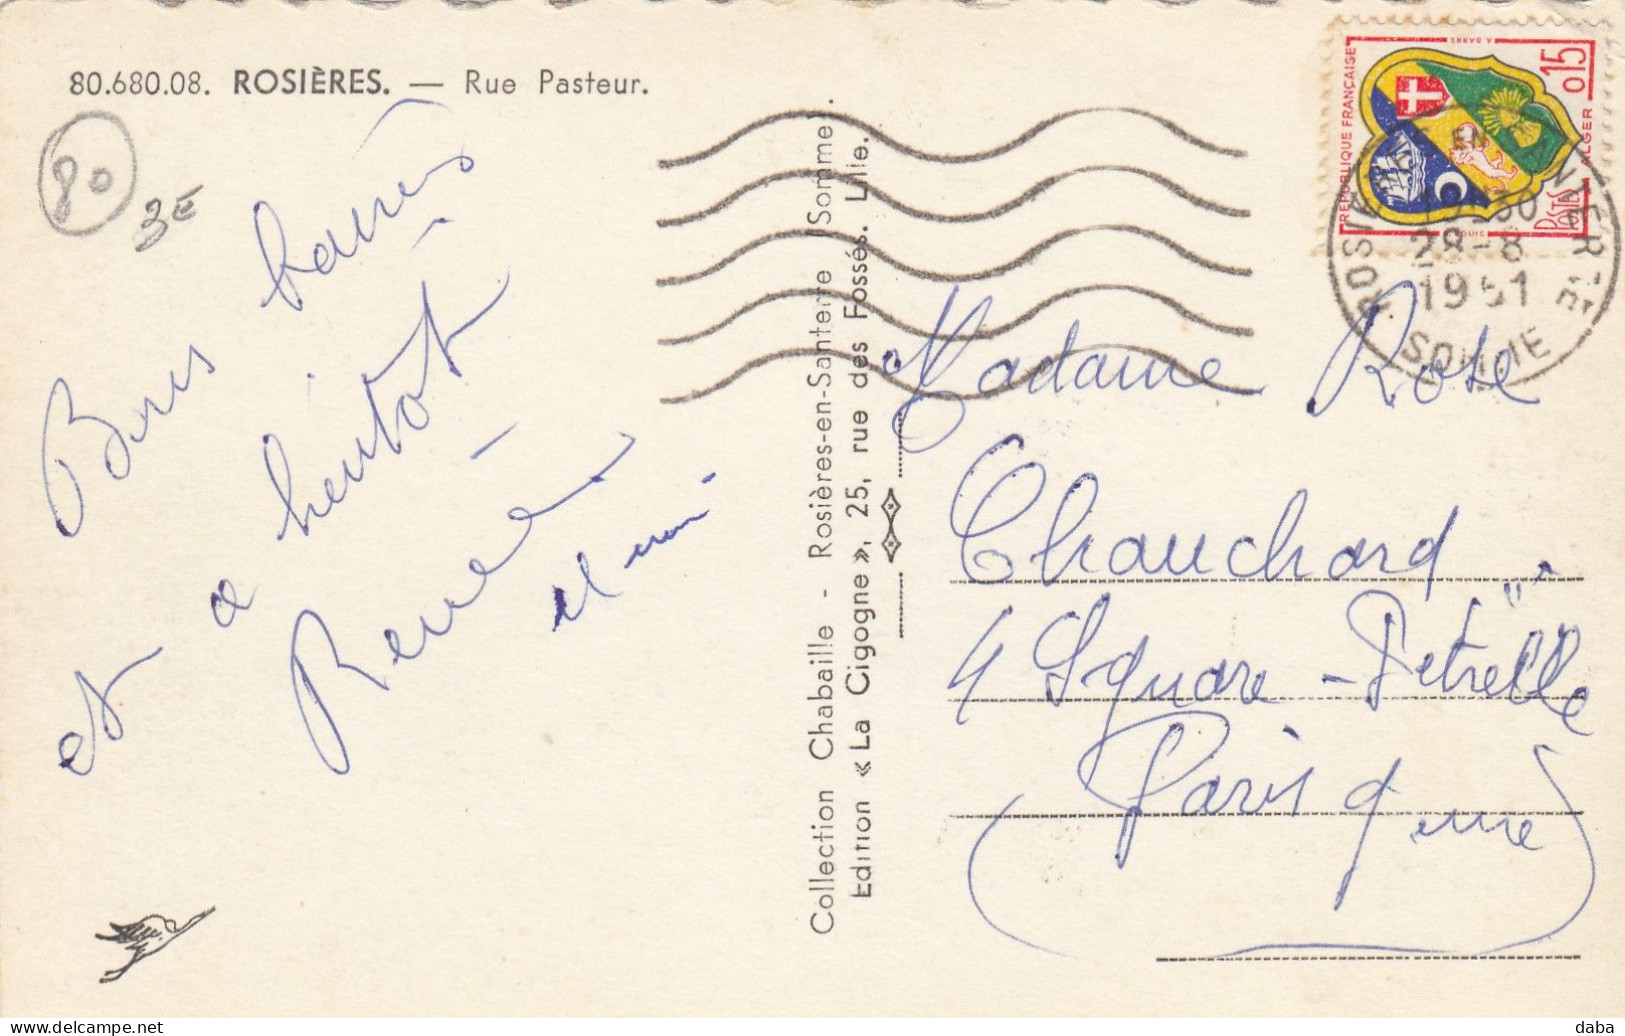 80.680.08. ROSIÈRES. — Rue Pasteur.
80
3E
Bons baisers
et a bientôt
Renée
Collection Chabaille - Rosières-en-Santerre (Somme).
Edition « La Cigogne », 25, rue des Fossés. Lille.
REPUBLIQUE FRANÇAISE
0.15
ALGER
POSTES
28-8
1961
SOMME
Madame Rose
Chauchard
4 Square - Petrelle
Paris 9eme
daba